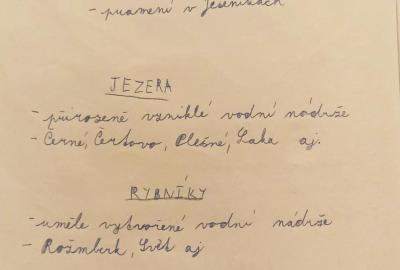 - pramení v Jeseníkách
JEZERA
- přirozeně vzniklé vodní nádrže
- Černé, Čertovo, Plešné, Laka aj.
RYBNÍKY
- uměle vytvořené vodní nádrže
- Rožmberk, Svět aj